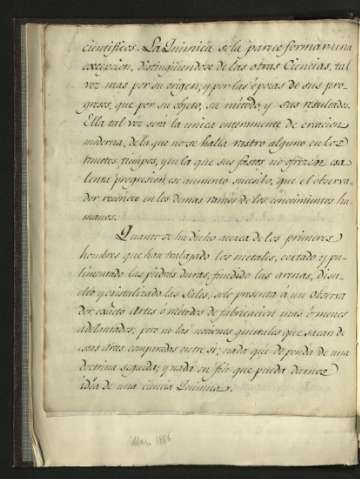 cientificos. La Quimica sola parece formar una
excepcion, distinguiendose de las otras Ciencias, tal
vez mas por su origen, y por las épocas de sus pro-
gresos, que por su objeto, su método, y sus resultados.
Ella tal vez será la unica enteramente de creacion
moderna, de la que no se halla rastro alguno en los
tiempos, y en la que sus fastos no ofrezcan una
lenta progresion, ese aumento sucesibo, que el observa-
dor reconoce en los demas ramos de los conocimientos hu-
manos.
Quanto se ha dicho acerca de los primeros
hombres que han trabajado los metales, cortado y pu-
limentado las piedras duras, fundido las arenas, disu-
elto y cristalizado las Sales, solo presenta á un observa-
dor exâcto artes ó metodos de fabricacion mas ó menos
adelantados; pero no las nociones generales que sacan de
estas artes comparadas entre si; nada que dependa de una
doctrina seguida; y nada en fin que pueda darnos
idéa de una ciencia Quimica.